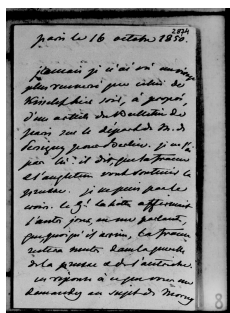 2874
paris le 16 octobre 1850.
jamais je n'ai vu
plus renversé que celui de
Kisseleff hier soir, à propos,
d'un article du bulletin de
paris sur le départ de M. de
Persigny pour Berlin. je n'ai
pas lu : il dit que la france
et l'angleterre vont soutenir la
prusse. je ne puis pas le
croire. le gl. la hitte affirmait
l'autre jour, en me parlant,
que quoiqu'il arrive, la france
restera neutre dans la querelle
de la prusse et de l'autriche.
en réponse à ce que vous me
demandez au sujet de Morny
8